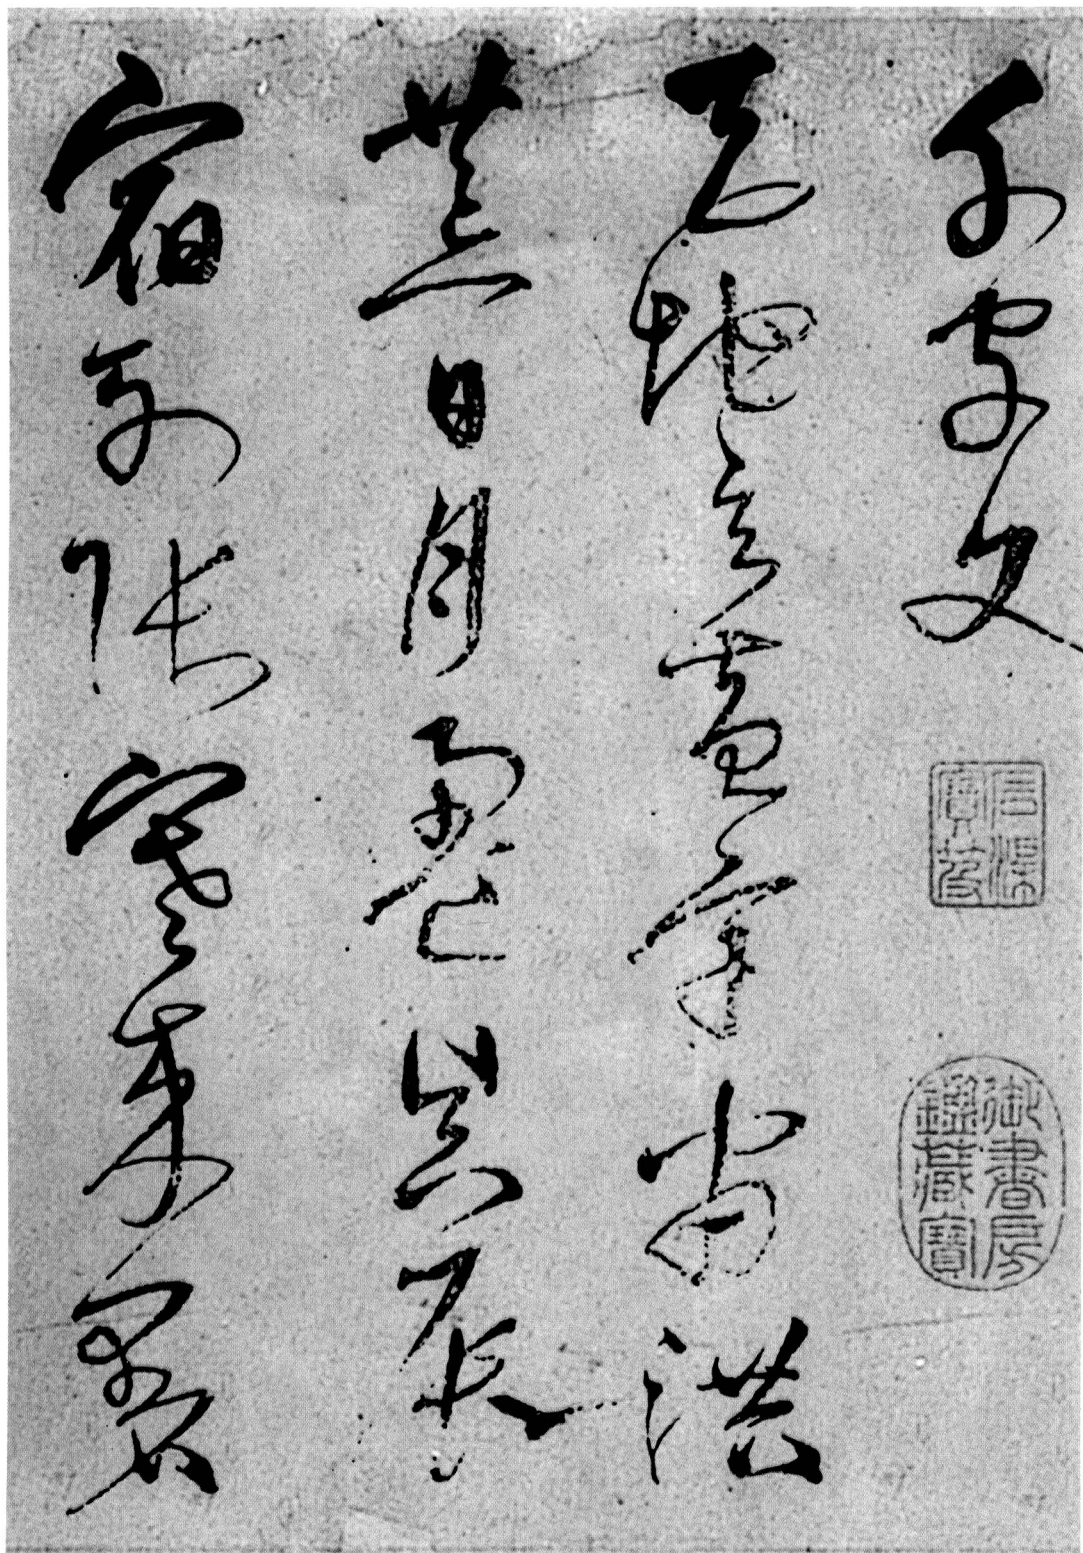 千字文
天地玄黃宇宙洪
荒日月盈昃辰
宿列張寒來暑
石渠寶笈
御書房鑑藏寶